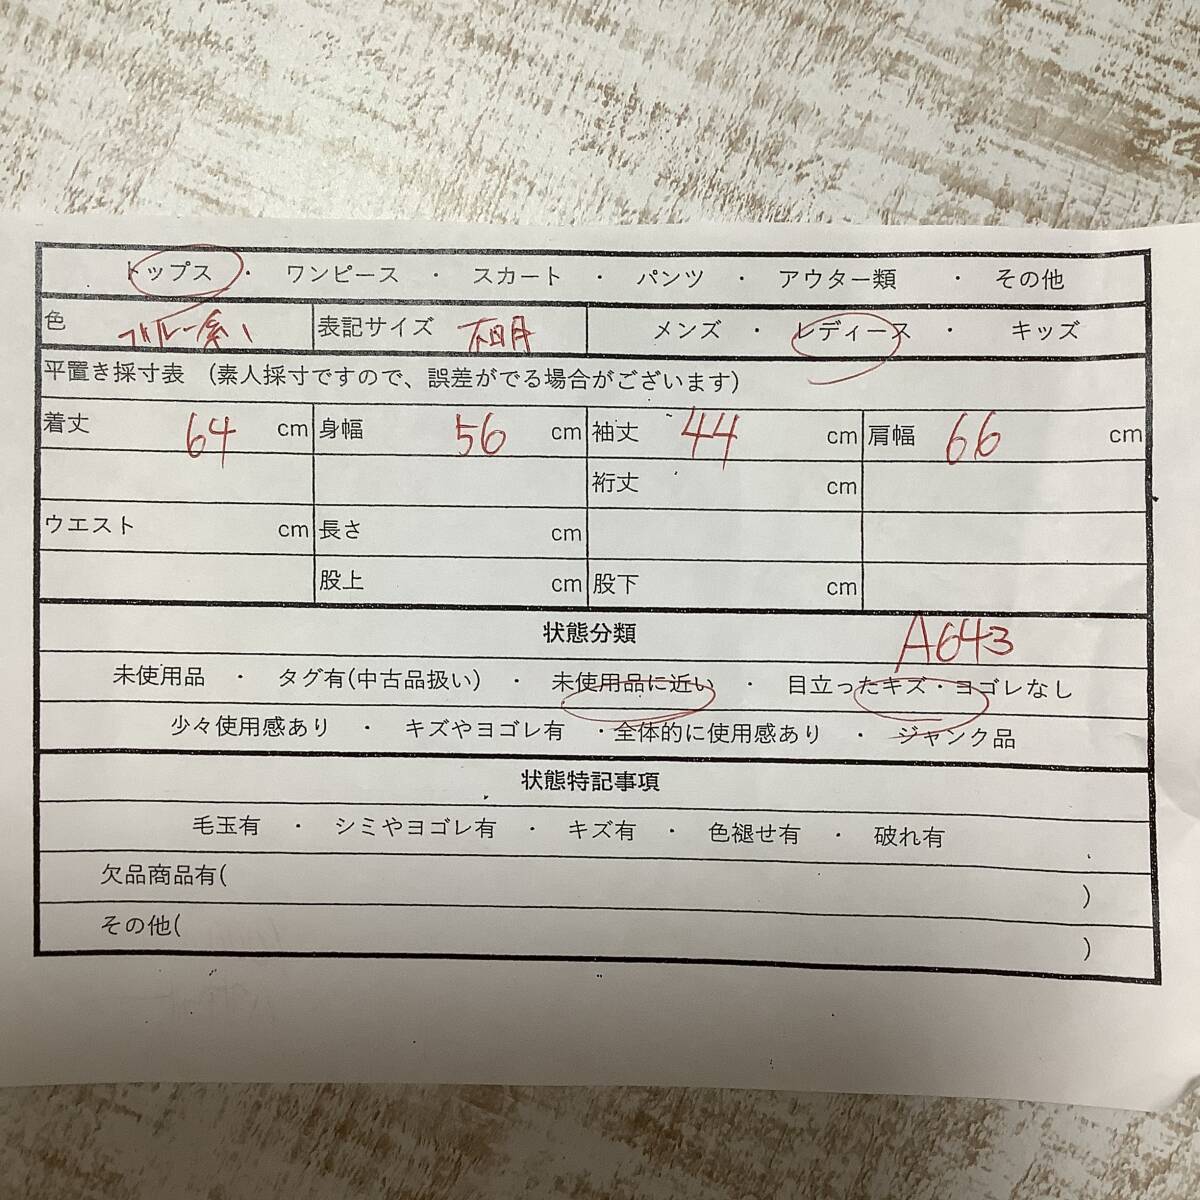 トップス ・ ワンピース ・ スカート ・ パンツ ・ アウター類 ・ その他
色 ブルー系 表記サイズ 不明 メンズ ・ レディース ・ キッズ
平置き採寸表 (素人採寸ですので、誤差がでる場合がございます)
着丈 64 cm 身幅 56 cm 袖丈 44 cm 肩幅 66 cm
裄丈 cm
ウエスト cm 長さ cm
股上 cm 股下 cm
状態分類 A643
未使用品 ・ タグ有(中古品扱い) ・ 未使用品に近い ・ 目立ったキズ・ヨゴレなし
少々使用感あり ・ キズやヨゴレ有 ・全体的に使用感あり ・ ジャンク品
状態特記事項
毛玉有 ・ シミやヨゴレ有 ・ キズ有 ・ 色褪せ有 ・ 破れ有
欠品商品有( )
その他( )